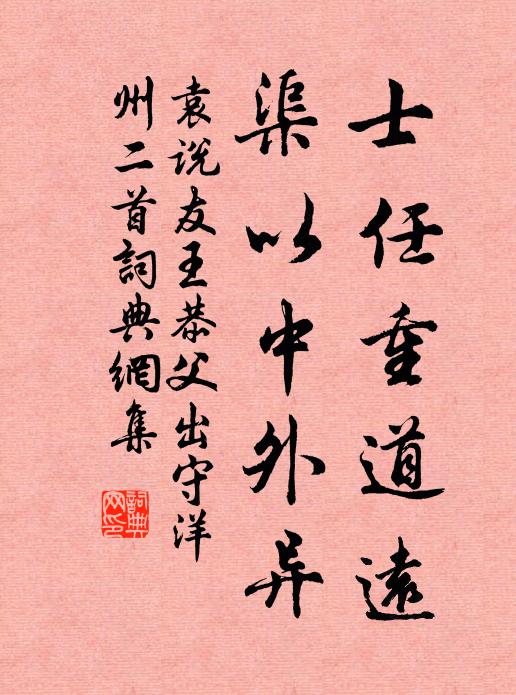 士任重道遠
渠以中外异
袁说友王恭父出守洋
州二首詞典網集
詞典
网印